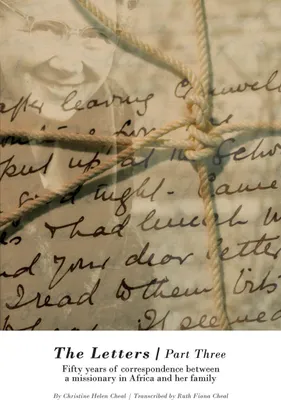 after leaving
put up at a Scho
good night. Came
is & had lunch w
and your dear letter
I read to them
It seemed
The Letters | Part Three
Fifty years of correspondence between
a missionary in Africa and her family
By Christine Helen Cheal | Transcribed by Ruth Fiona Cheal